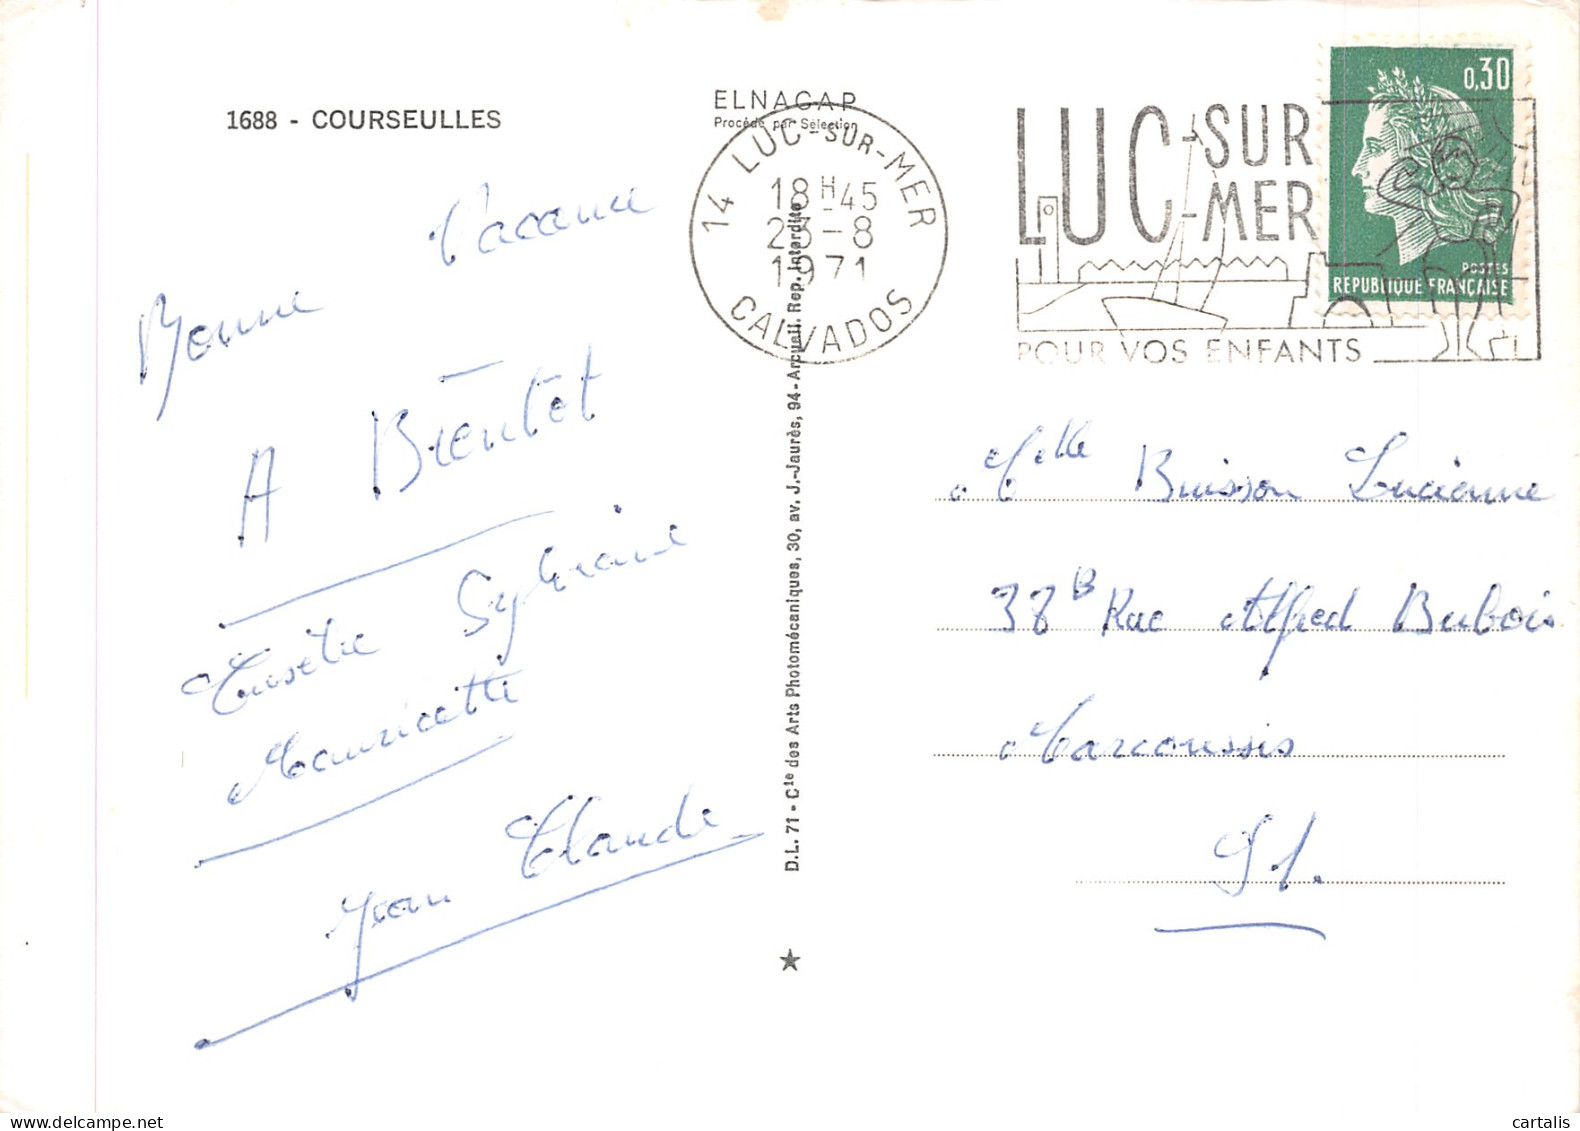 1688 - COURSEULLES
ELNAGAP
Procédé par Sélection
Bonne Vacance
A Bientot
Sylviane
Mauricette
Jean Claude
14 LUC-SUR-MER
18H45
23-8
1971
CALVADOS
LUC-SUR
-MER
POUR VOS ENFANTS
0,30
POSTES
REPUBLIQUE FRANÇAISE
D.L. 71 - Cte des Arts Photomécaniques, 30, av. J.-Jaurès, 94 - Arcueil. Rep. Interdite
Melle Buisson Lucienne
38B Rue Alfred Dubois
Marcoussis
91.
cartalis